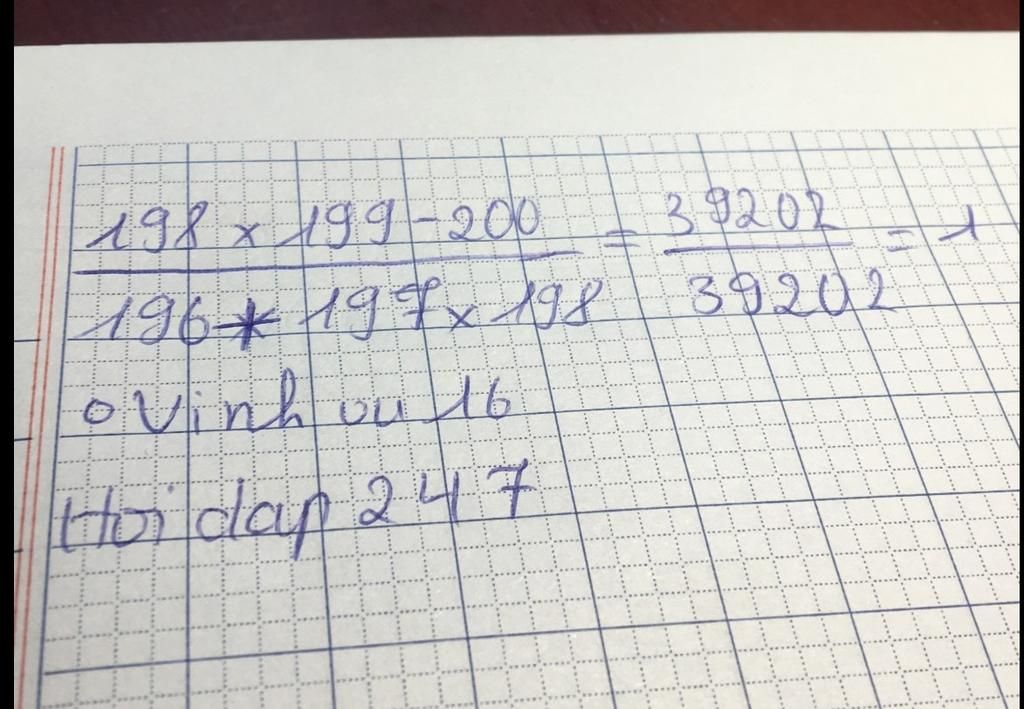 198 x 199 - 200 / 196 * 197 x 198 = 39202 / 39202 = 1
o Vinh ou 16
Hoi dap 247